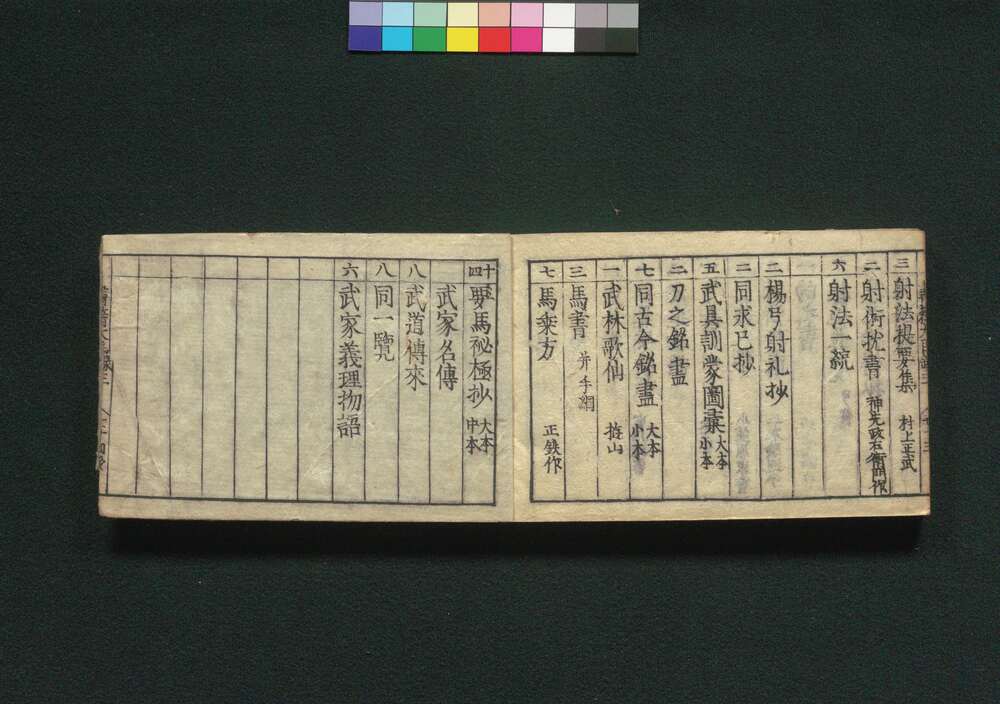 三 射法提要集 村上正武
二 射術枕書 神尾政右衛門作
六 射法一統
二 楊弓射礼抄
二 同求己抄
五 武具訓蒙圖彙 大本 小本
二 刀之銘盡
七 同古今銘盡 大本 小本
一 武林歌仙 遊山
三 馬書 并手綱
七 馬乗方 正鉄作
十四 要馬秘極抄 大本 中本
武家名傳
八 武道傳來
八 同一覧
六 武家義理物語